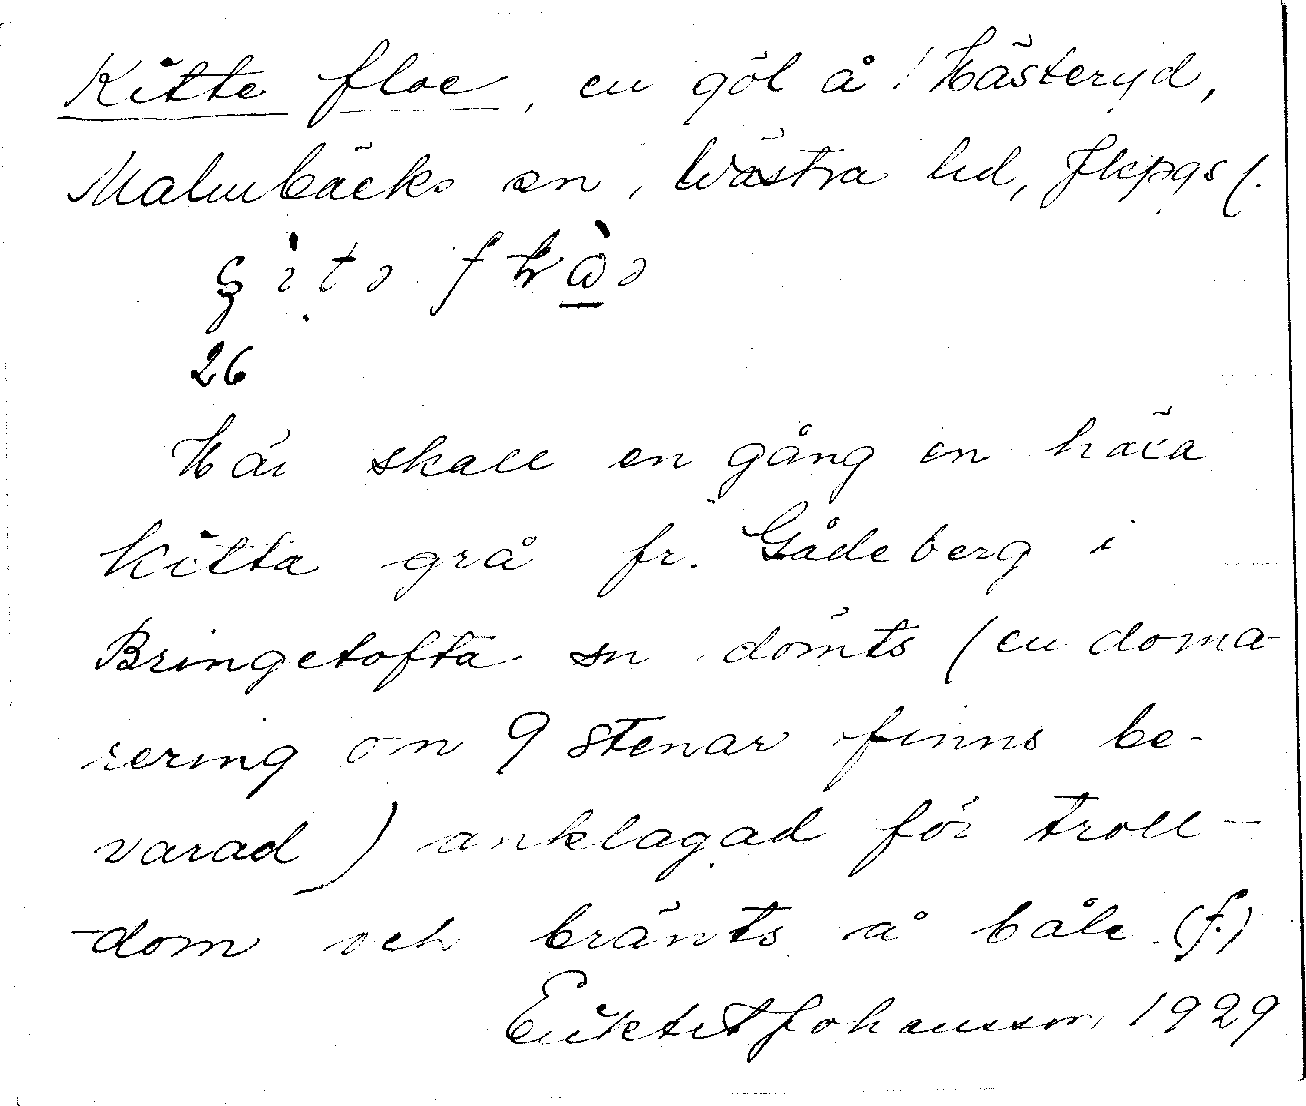 Kitte floe, en göl å Hästeryd,
Malmbäcks sn, Västra hd, Jkpgs l.
26
Här skall en gång en häxa
Kitta grå fr. Gådeberg i
Bringetofta sn dömts (en doma-
rering om 9 stenar finns be-
varad) anklagad för troll-
-dom och bränts å båle (f.)
Johansson 1929